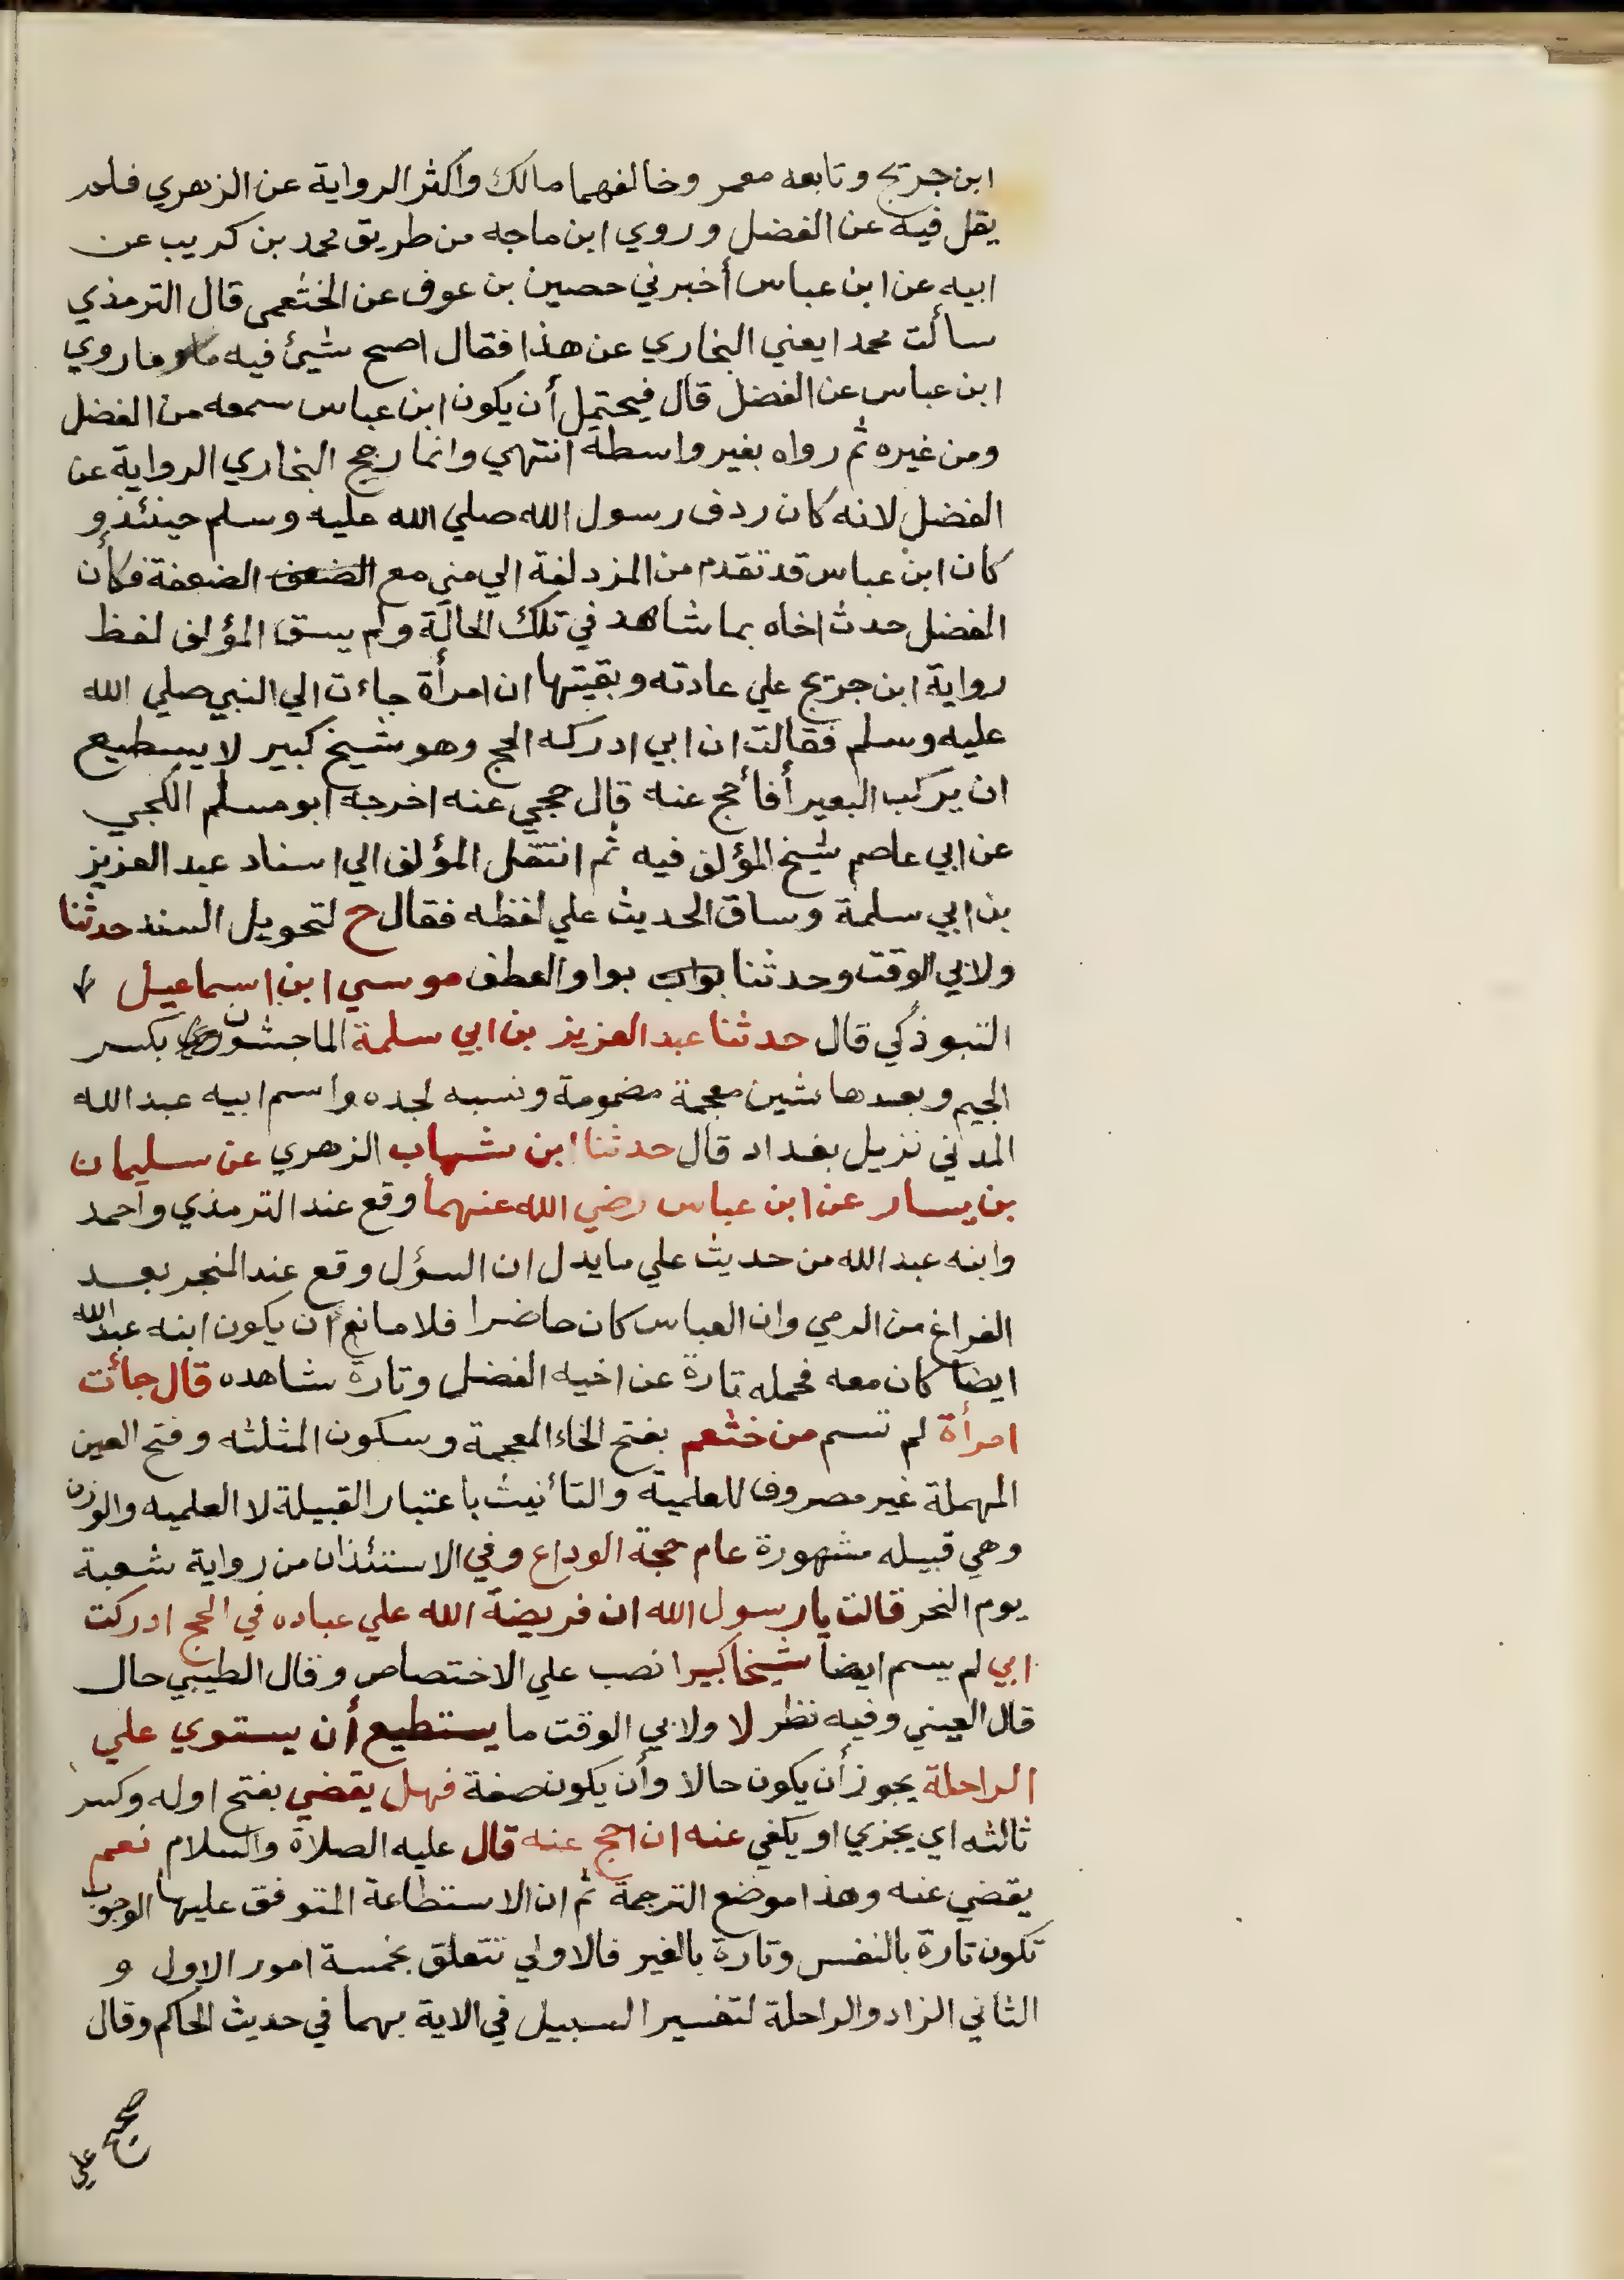 ابن جريج وتابعه معمر وخالفهما مالك واكثر الرواية عن الزهري فلم
يقل فيه عن الفضل وروي ابن ماجه من طريق محمد بن كريب عن
ابيه عن ابن عباس أخبرني حصين بن عوف عن الخثعمي قال الترمذي
سألت محمدا يعني البخاري عن هذا فقال اصح شيئ فيه ما روي
ابن عباس عن الفضل قال فيحتمل أن يكون ابن عباس سمعه من الفضل
ومن غيره ثم رواه بغير واسطة انتهي وانما رجح البخاري الرواية عن
الفضل لانه كان ردف رسول الله صلي الله عليه وسلم حينئذ و
كان ابن عباس قد تقدم من المزدلفة الي مني مع الضعف الضعفة فكأن
الفضل حدث اخاه بما شاهد في تلك الحالة ولم يسق المؤلف لفظ
رواية ابن جريج علي عادته وبقيتها ان امرأة جاءت الي النبي صلي الله
عليه وسلم فقالت ان ابي ادركه الحج وهو شيخ كبير لا يسطيع
ان يركب البعير أفأحج عنه قال حجي عنه اخرجه ابو مسلم الكجي
عن ابي عاصم شيخ المؤلف فيه ثم انتقل المؤلف الي اسناد عبد العزيز
بن ابي سلمة وساق الحديث علي لفظه فقال ح لتحويل السند حدثنا
ولابي الوقت وحدثنا بواب بواو العطف موسي ابن اسماعيل
التبوذكي قال حدثنا عبد العزيز بن ابي سلمة الماجشون بكسر
الجيم وبعدها شين معجمة مضمومة ونسبه لجده واسم ابيه عبد الله
المدني نزيل بغداد قال حدثنا ابن شهاب الزهري عن سليمان
بن يسار عن ابن عباس رضي الله عنهما وقع عند الترمذي واحمد
وابنه عبد الله من حديث علي ما يدل ان السؤل وقع عند المنحر بعد
الفراغ من الرمي وان العباس كان حاضرا فلا مانع ان يكون ابنه عبد الله
ايضا كان معه فحمله تارة عن اخيه الفضل وتارة شاهده قال جأت
امرأة لم تسم من خثعم بفتح الخاء المعجمة وسكون المثلثه وفتح العين
المهملة غير مصروف للعلمية والتأنيث باعتبار القبيلة لا العلميه والوزن
وهي قبيله مشهورة عام حجة الوداع وفي الاستئذان من رواية شعبة
يوم النحر قالت يا رسول الله ان فريضة الله علي عباده في الحج ادركت
ابي لم يسم ايضا شيخا كبيرا نصب علي الاختصاص وقال الطيبي حال
قال العيني وفيه نظر لا ولابي الوقت ما يستطيع أن يستوي علي
الراحلة يجوز أن يكون حالا وأن يكون صفة فهل يقضي بفتح اوله وكسر
ثالثه اي يجزي او يكفي عنه ان احج عنه قال عليه الصلاة والسلام نعم
يقضي عنه وهذا موضع الترجمة ثم ان الاستطاعة المتوفق عليها الوجوب
تكون تارة بالنفس وتارة بالغير فالاولي تتعلق بخمسة امور الاول و
الثاني الزاد والراحلة لتفسير السبيل في الاية بهما في حديث الحاكم وقال
صحيح
علي